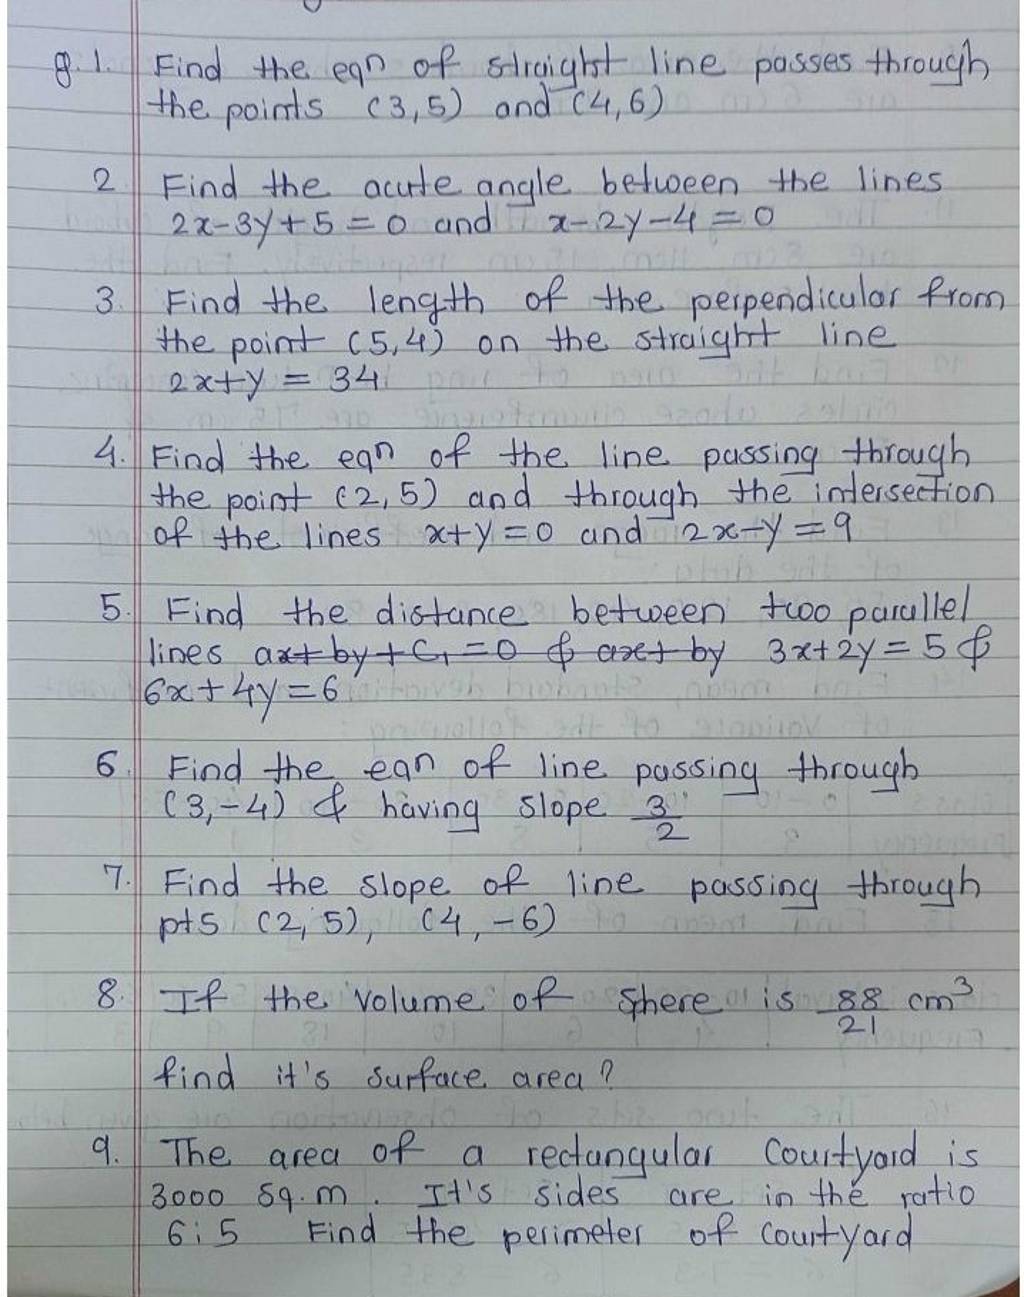 Q.1. Find the eqn of straight line passes through
the points (3,5) and (4,6)
2. Find the acute angle between the lines
2x-3y+5=0 and x-2y-4=0
3. Find the length of the perpendicular from
the point (5,4) on the straight line
2x+y = 34
4. Find the eqn of the line passing through
the point (2,5) and through the intersection
of the lines x+y=0 and 2x-y=9
5. Find the distance between two parallel
lines ax+by+C₁=0 & ax+by 3x+2y=5 &
6x+4y=6
6. Find the eqn of line passing through
(3,-4) & having slope 3/2
7. Find the slope of line passing through
pts (2,5), (4,-6)
8. If the volume of Sphere is 88/21 cm³
find it's surface area?
9. The area of a rectangular Courtyard is
3000 sq.m. It's sides are in the ratio
6:5 Find the perimeter of courtyard